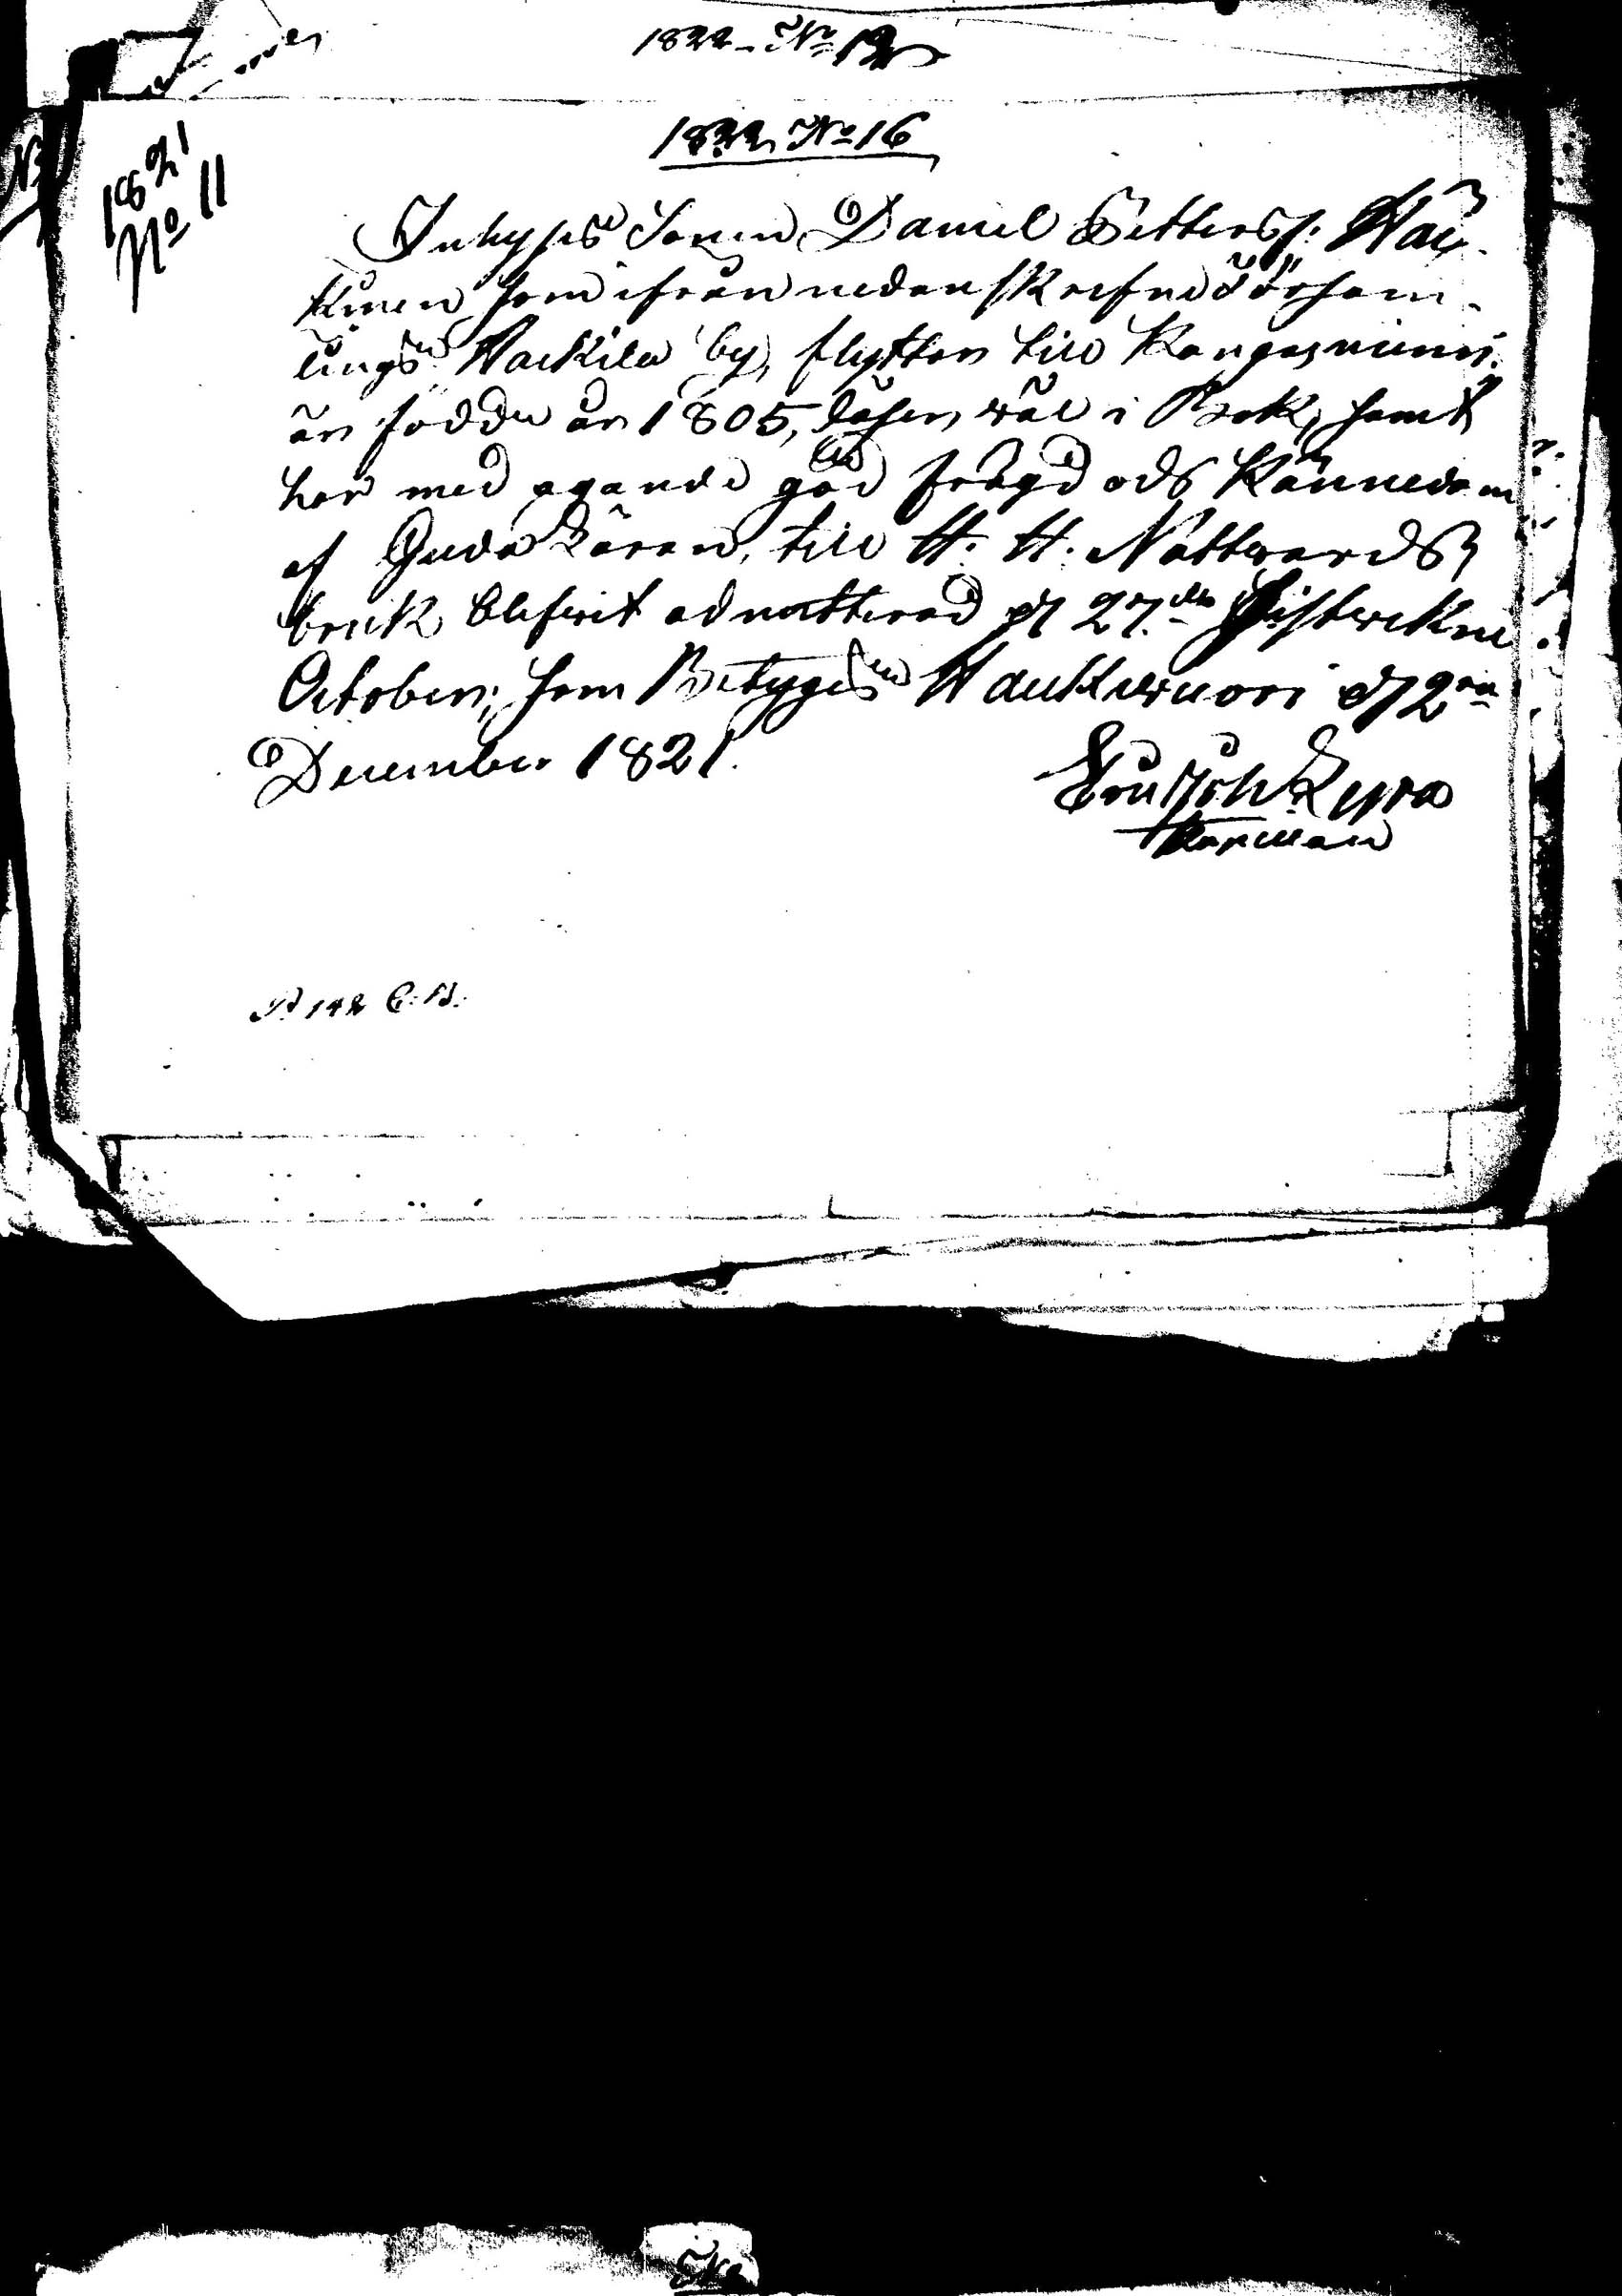 1822 No 12
1822 No 16
1821
No 11
Inhyses Sonen Daniel Pettersß: Hae
kinen som ifrån nedanskrefne Församl
lings Haekilä by, flyttar till Kangasniemi,
är född år 1805, läser wäl i Bok, samt
har med ägande god frägd och Kännedom
af Guda Läran, till H. H. Nattwards
bruk blifwit admitterad d 27de Sistwekne
October; som Betygas Haukiwuori d 2ra
December 1821.
Kapellan
P. 142 C. B.